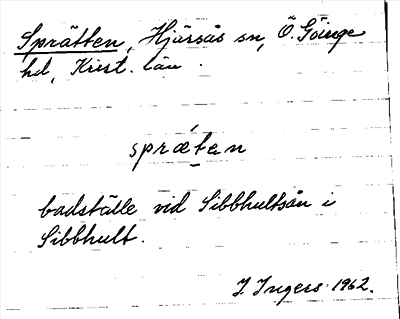 Sprätten, Hjärsås sn, Ö. Göinge
hd, Krist. län.
sprǽten
badställe vid Sibbhultsån i
Sibbhult.
I. Ingers 1962.